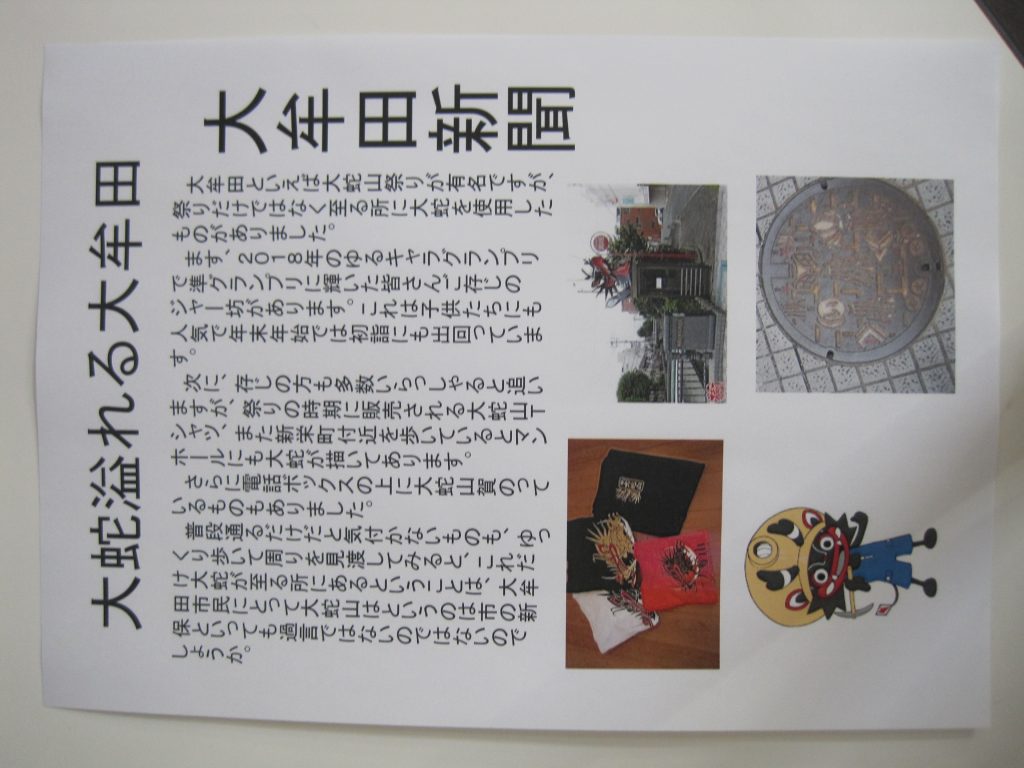 大蛇溢れる大牟田
大牟田新聞
大牟田といえば大蛇山祭りが有名ですが、
祭りだけではなく至る所に大蛇を使用した
ものがありました。
まず、2018年のゆるキャラグランプリ
で準グランプリに輝いた皆さんご存じの
ジャー坊があります。これは子供たちにも
人気で年末年始では初詣にも出回っていま
す。
次に、存じの方も多数いらっしゃると追い
ますが、祭りの時期に販売される大蛇山T
シャツ、また新栄町付近を歩いているとマン
ホールにも大蛇が描いてあります。
さらに電話ボックスの上に大蛇山賀のって
いるものもありました。
普段通るだけだと気付かないものも、ゆっ
くり歩いて周りを見渡してみると、これだ
け大蛇が至る所にあるということは、大牟
田市民にとって大蛇山はというのは市の新
保といっても過言ではないのではないので
しょうか。